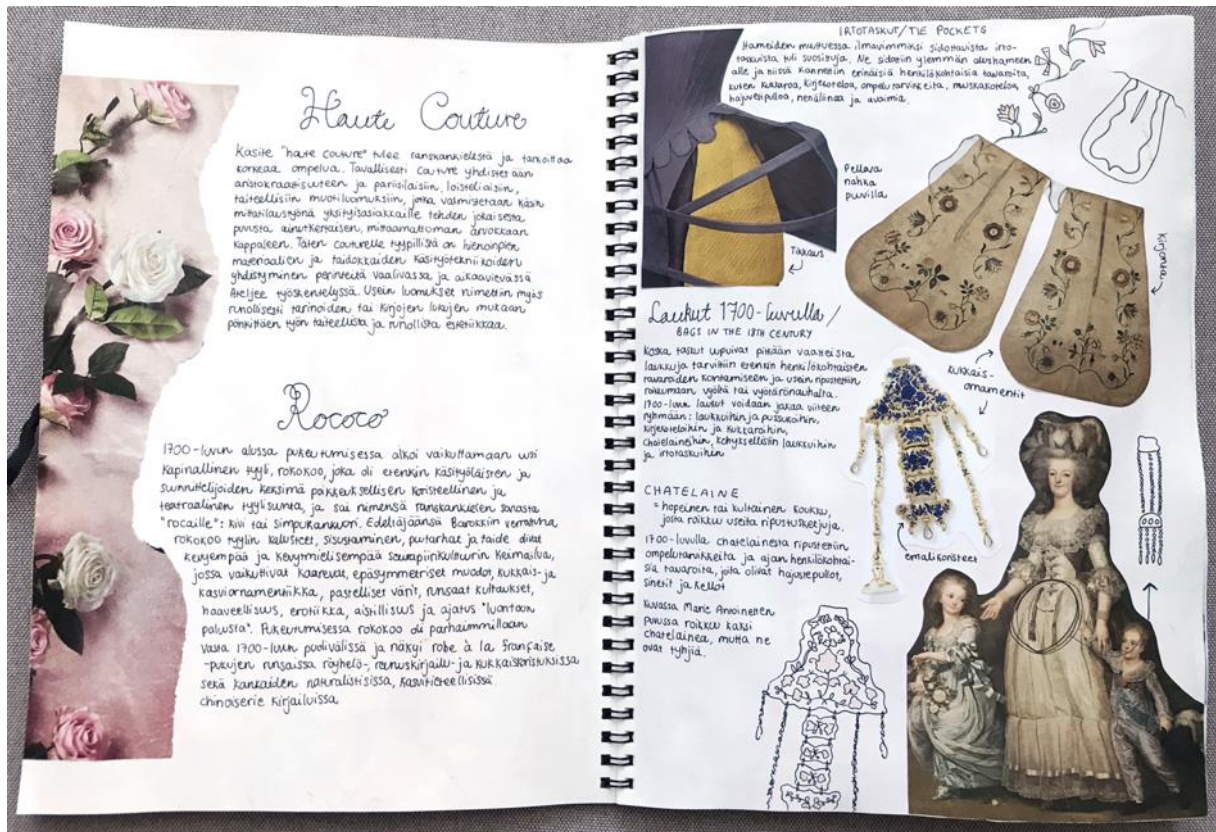 Haute Couture
Käsite "haute couture" tulee ranskankielestä ja tarkoittaa
korkeaa ompelua. Tavallisesti couture yhdistetään
aristokraattisuuteen ja pariisilaisiin, loisteliaisiin,
taiteellisiin muotiluomuksiin, jotka valmistetaan käsin
mittatilaustyönä yksityisasiakkaille tehden jokaisesta
puvusta ainutkertaisen, mittaamattoman arvokkaan
kappaleen. Täten couturelle tyypillistä on hienoimpien
materiaalien ja taidokkaiden käsityötekniikoiden
yhdistyminen perinteitä vaalivassa ja aikaavievässä
Ateljee työskentelyssä. Usein luomukset nimettiin myös
runollisesti tarinoiden tai kirjojen lukujen mukaan
pönkittäen työn taiteellista ja runollista estetiikkaa.
Rococo
1700-luvun alussa pukeutumisessa alkoi vaikuttamaan uusi
kapinallinen tyyli, rokokoo, joka oli etenkin käsityöläisten ja
suunnittelijoiden keksimä poikkeuksellisen koristeellinen ja
teatraalinen tyylisuunta, ja sai nimensä ranskankielen sanasta
"rocaille": kivi tai simpukankuori. Edeltäjäänsä Barokkiin verrattuna,
rokokoo tyylin kalusteet, sisustaminen, puutarhat ja taide olivat
kevyempää ja kevytmielisempää seurapiirikulttuurin keimailua,
jossa vaikuttivat kaarevat, epäsymmetriset muodot, kukkais- ja
kasviornamentiikka, pastelliset värit, runsaat kultaukset,
haaveellisuus, erotiikka, aistillisuus ja ajatus "luontoon
paluusta". Pukeutumisessa rokokoo oli parhaimmillaan
vasta 1700-luvun puolivälissä ja näkyi robe à la française
-pukujen runsaissa röyhelö-, reunuskirjailu- ja kukkaiskoristuksissa
sekä kankaiden naturalistisissa, kasvitieteellisissä
chinoiserie kirjailuissa
IRTOTASKUT/TIE POCKETS
Hameiden muttuessa ilmavimmiksi sidottavista irto-
taskuista tuli suosittuja. Ne sidottiin ylemmän alushameen
alle ja niissä kannettiin erinäisiä henkilökohtaisia tavaroita,
kuten kukkaroa, kirjekoteloa, ompelutarvikkeita, nuuskakoteloa,
hajuvesipulloa, nenäliinaa ja avaimia.
Pellava
nahka
puuvilla
Tikkaus
Kirjonta
Laukut 1700-luvulla/
BAGS IN THE 18TH CENTURY
Koska taskut uupuivat pitkään vaatteista
laukkuja tarvittiin etenkin henkilökohtaisten
tavaroiden kantamiseen ja usein ripustettiin
roikkumaan vyöltä tai vyötärönauhalta.
1700-luvun laukut voidaan jakaa viiteen
ryhmään: laukkuihin ja pussukoihin,
kirjekoteloihin ja kukkaroihin,
chatelaineihin, kehyksellisiin laukkuihin
ja irtotaskuihin
kukkais-
ornamentit
CHATELAINE
= hopeinen tai kultainen koukku,
josta roikkuu useita ripustusketjuja.
1700-luvulla chatelainesta ripustettiin
ompelutarvikkeita ja ajan henkilökohtai-
sia tavaroita, joita olivat hajustepullot,
sinetit ja kellot
emalikoristeet
Kuvassa Marie Antoinetten
puvussa roikkuu kaksi
chatelainea, mutta ne
ovat tyhjiä.